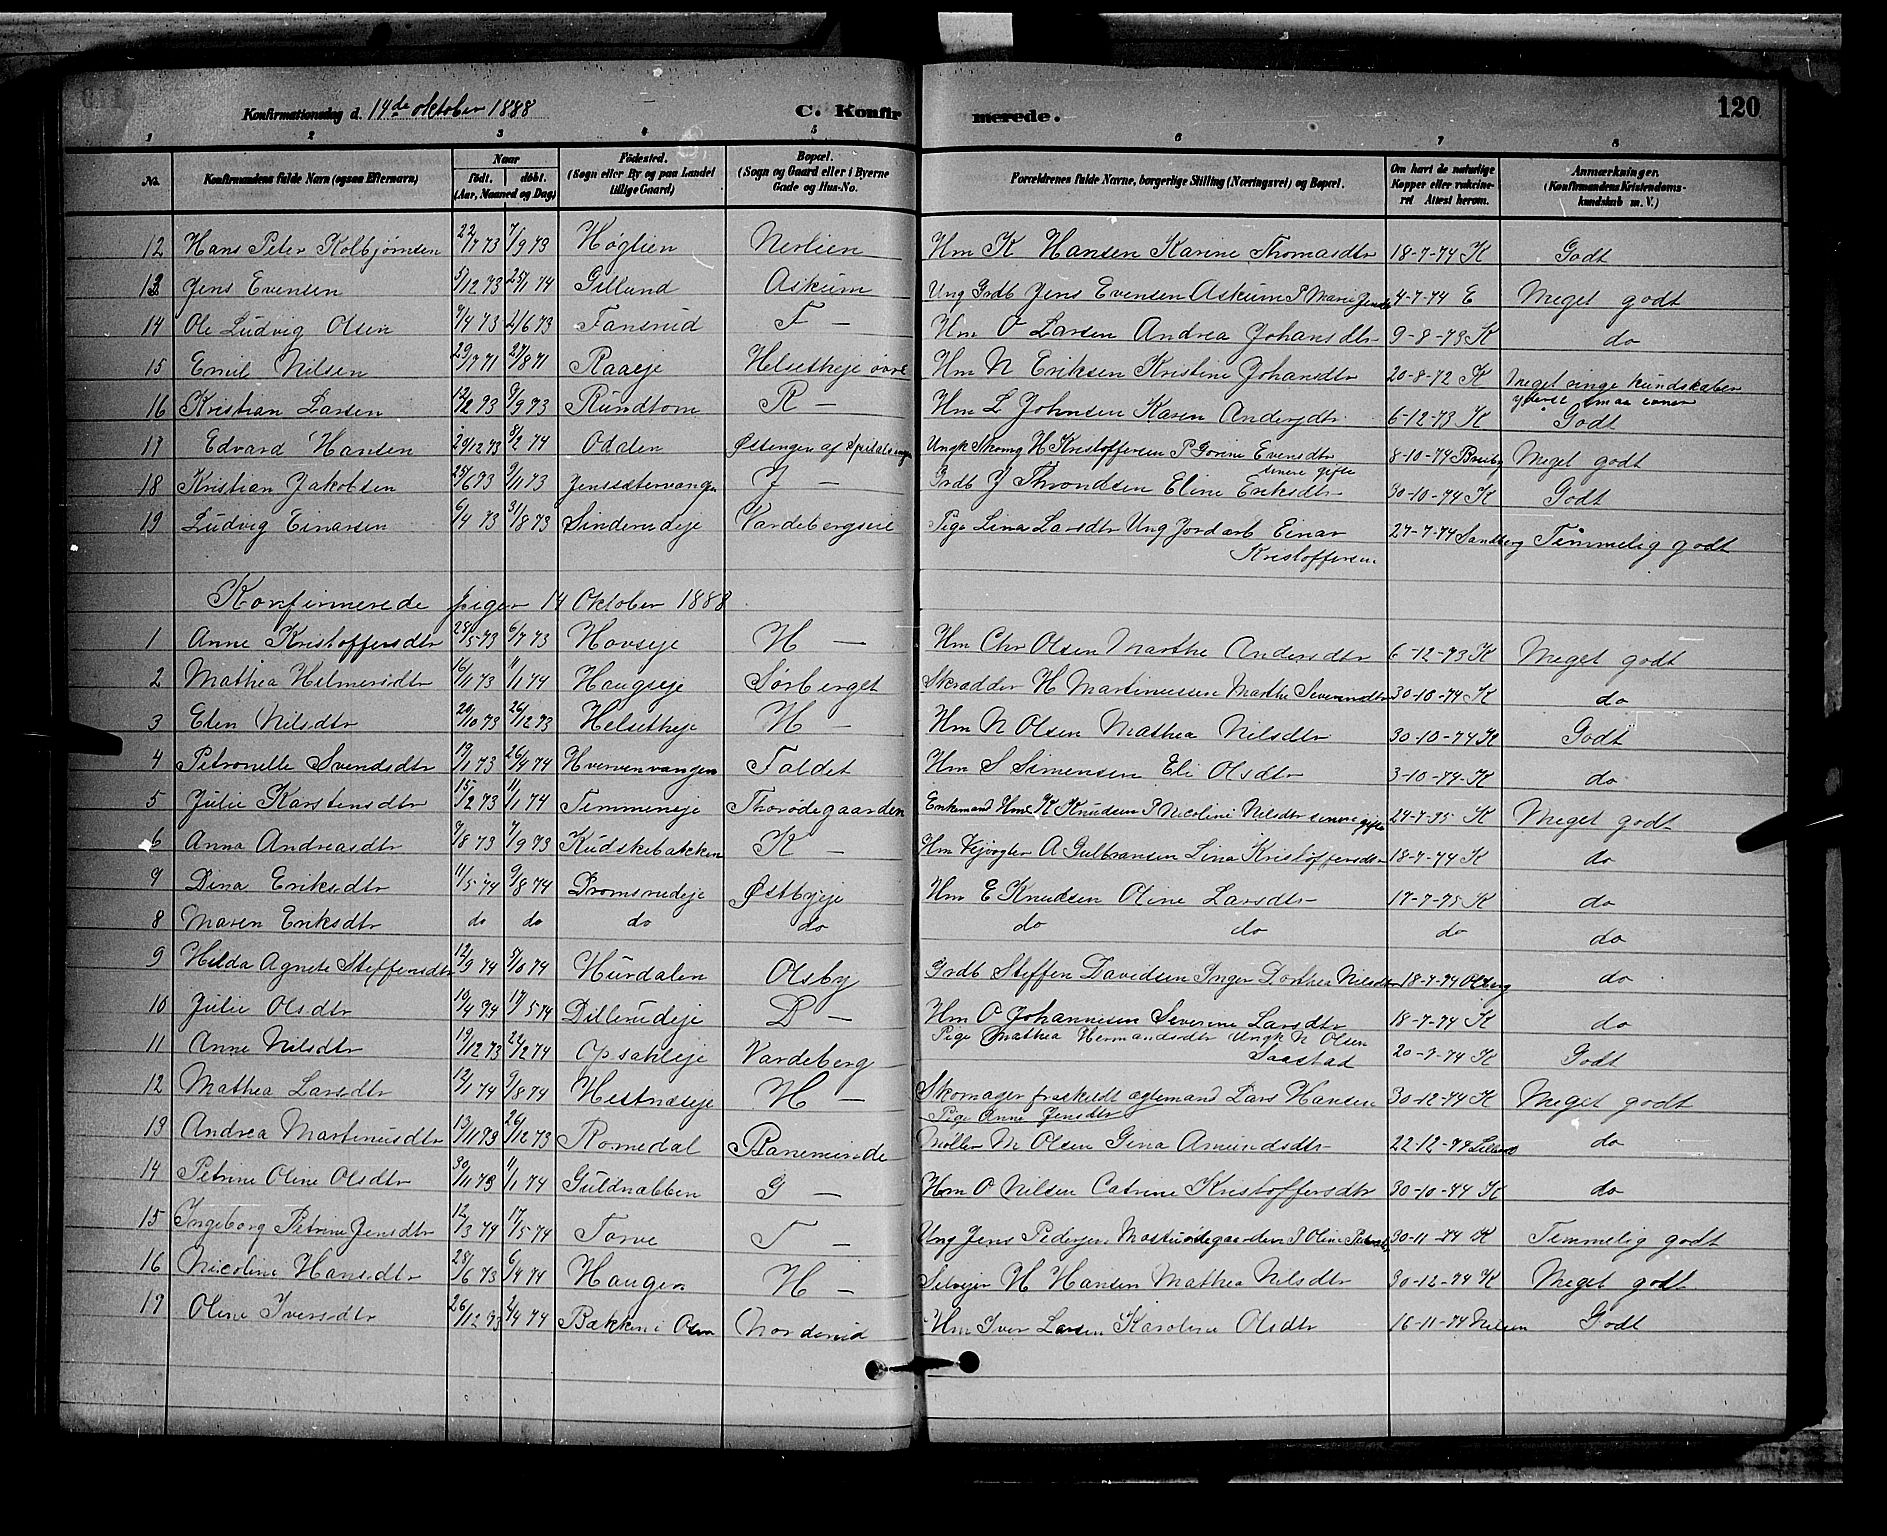 Konfirmationsdag d. 14de oktober 1888 C. Konfirmerede. 120
1 2 3 4 5 6 7 8
No. Konfirmandens fulde Navn (ogsaa Efternavn) Naar født. døbt. (Aar, Maaned og Dag) Fødested. (Sogn eller By og paa Landet tillige Gaard) Bopæl. (Sogn og Gaard eller i Byerne Gade og Hus-No. Forældrenes fulde Navne, borgerlige Stilling (Næringsvei) og Bopæl. Om havt de naturlige Kopper eller vakcineret Attest herom. Anmærkninger. (Konfirmandens Kristendomskundskab m. V.)
12 Hans Peter Kolbjørnsen 22/7 73 7/9 73 Høglien Nerlien Hm K Hansen Karine Thomasdtr 18-7-74 K Godt
13 Jens Evensen 5/12 73 25/1 74 Gillund Askum Ung Grdb Jens Evensen Askum P Marie 4-7-74 E Meget godt
14 Ole Ludvig Olsen 7/4 73 2/6 73 Fansrud F — Hm O Larsen Andrea Johansdtr 9-8-73 K do
15 Emil Nilsen 29/7 71 27/8 71 Raaeje Helsetheje øvre Hm N Eriksen Kristine Johansdtr 20-8-72 K Meget ringe kundskaber yderst smaa evner
16 Kristian Larsen 12/2 73 9/9 73 Rundtom R — Hm L Johnsen Karen Andersdtr 6-12-73 K Godt
17 Edvard Hansen 20/12 73 8/2 74 Odalen Østengen af Spitalengen Ungk Skomg H Kristoffersen P Gorine Evensdtr 8-10-74 Meget godt
18 Kristian Jakobsen 25/6 73 9/11 73 Jenssætervangen J — Grdb J Throndsen Eline Eriksdtr senere gifte 30-10-74 K Godt
19 Ludvig Einarsen 6/4 73 31/8 73 Sinderudeje Vardebergseie Pige Lina Larsdtr Ung Jordarb Einar Kristoffersen 27-7-74 Sandberg Temmelig godt
Konfirmerede piger 14 Oktober 1888
1 Anne Kristoffersdtr 28/5 73 6/7 73 Hovseje H — Hm Chr Olsen Marthe Andersdtr 6-12-73 K Meget godt
2 Mathea Helmersdtr 16/11 73 11/1 74 Haugseje Sørberget Skrædder H Martinussen Marthe 30-10-74 K do
3 Elen Nilsdtr 20/10 73 26/12 73 Helsetheje H — Hm N Olsen Mathea Nilsdtr 30-10-74 K Godt
4 Petronelle Svendsdtr 19/1 73 26/4 74 Hvervenvangen Faldet Hm S Simensen Eli Olsdtr 3-10-74 K do
5 Julie Karstensdtr 15/12 73 11/1 74 Temmeneje Thorødegaarden Enkemand Hm K Knudsen P Nicoline Nilsdtr senere gifte 24-7-75 K Meget godt
6 Anna Andreasdtr 9/8 73 7/9 73 Kudskebakken K — Hm Vejvogter A Gulbransen Lina Kristoffersdtr 18-7-74 K do
7 Dina Eriksdtr 11/5 74 9/8 74 Promsrudeje Østbyeje Hm E Knudsen Oline Larsdtr 17-7-75 K do
8 Maren Eriksdtr do do do do do do do do
9 Hilda Agnete Steffensdtr 12/9 74 5/10 74 Hurdalen Olsby Grdb Steffen Davidsen Inger Dorthea Nilsdtr 18-7-74 do
10 Julie Olsdtr 19/4 74 17/5 74 Dillerudeje D — Hm O Johannesen Severine Larsdtr 18-7-74 K do
11 Anne Nilsdtr 19/12 73 22/2 74 Opsahleje Vardeberg Pige Mathea Hermandsdtr Ungk N Olsen Saastad 20-7-74 K Godt
12 Mathea Larsdtr 12/1 74 9/8 74 Hestnæseje H — Skomager fraskildt ægtemand Lars Hansen Pige Anne Jensdtr 30-12-74 K Meget godt
13 Andrea Martinusdtr 13/11 73 26/12 73 Romedal Baneminde Møller M Olsen Gina Amundsdtr 22-12-74 do
14 Petrine Oline Olsdtr 30/11 73 11/1 74 Guldnabben G — Hm O Nilsen Catrine Kristoffersdtr 30-10-74 K do
15 Ingeborg Petrine Jensdtr 12/3 74 17/5 74 Torve T — Ung Jens Pedersen P Oline 30-11-74 K Temmelig godt
16 Nicoline Hansdtr 28/6 73 6/4 74 Haugen H — Selvejer H Hansen Mathea Nilsdtr 30-12-74 K Meget godt
17 Oline Iversdtr 26/12 73 2/4 74 Bakken i Nordrud Hm Iver Larsen Karoline Olsdtr 16-11-74 Nilsen Godt